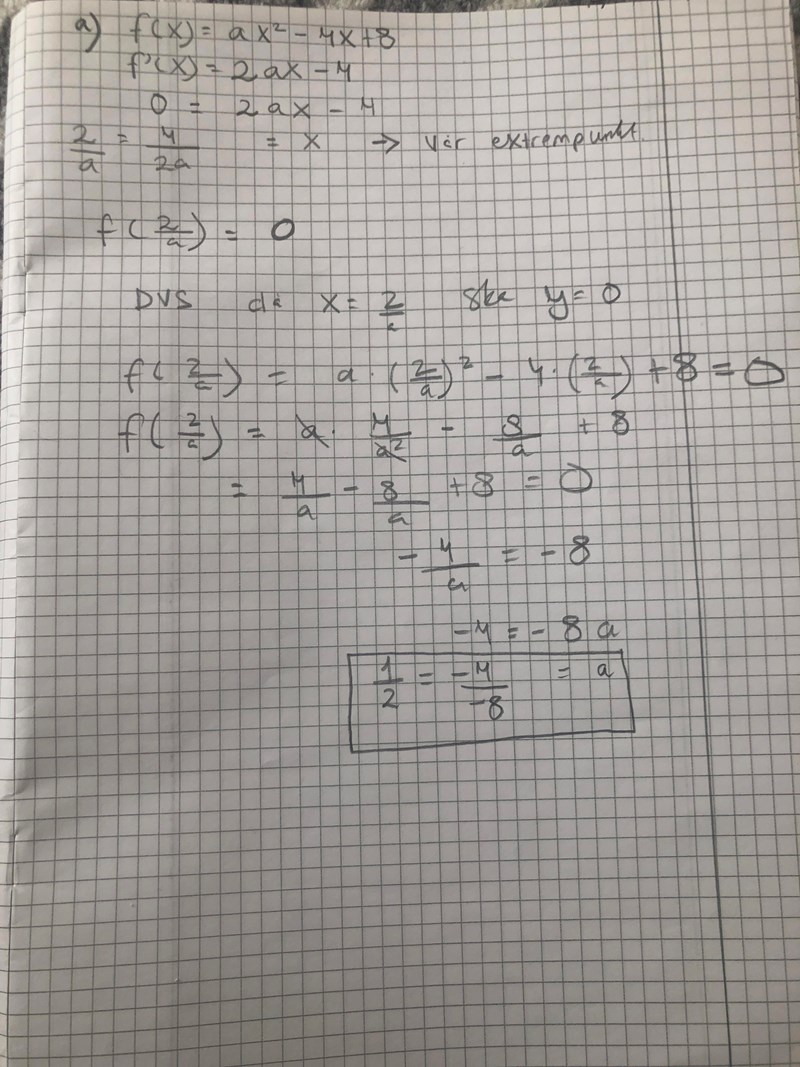 a) f(x) = ax² - 4x+8
f'(x) = 2ax - 4
0 = 2ax - 4
2/a = 4/2a = x → vår extrempunkt.
f(2/a) = 0
DVS då x = 2/a ska y = 0
f(2/a) = a · (2/a)² - 4 · (2/a) + 8 = 0
f(2/a) = a · 4/a² - 8/a + 8
= 4/a - 8/a + 8 = 0
- 4/a = - 8
-4 = - 8 a
1/2 = -4/-8 = a